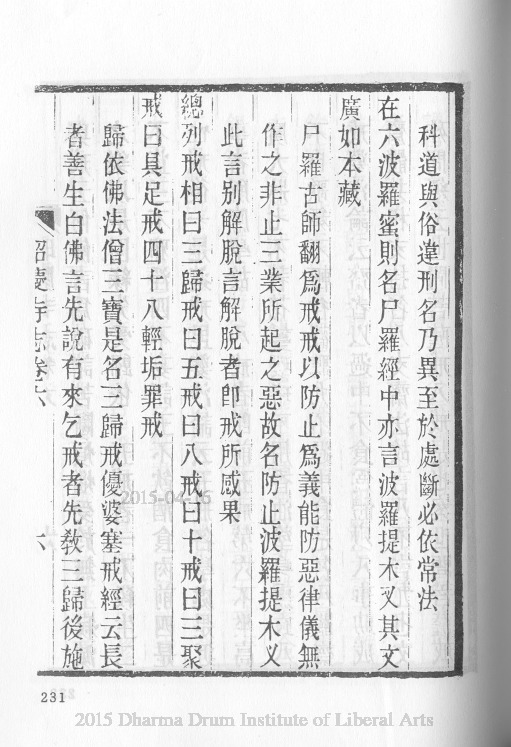 科道與俗違刑名乃異至於處斷必依常法
在六波羅蜜則名尸羅經中亦言波羅提木叉其文
廣如本藏
尸羅古師翻爲戒戒以防止爲義能防惡律儀無
作之非止三業所起之惡故名防止波羅提木义
此言別解脫言解脫者卽戒所感果
總列戒相曰三歸戒曰五戒曰八戒曰十戒曰三聚
戒曰具足戒四十八輕垢罪戒
歸依佛法僧三寶是名三歸戒優婆塞戒經云長
者善生白佛言先說有來乞戒者先敎三歸後施
昭慶寺志卷六
六
2015-04-16
231
2015 Dharma Drum Institute of Liberal Arts